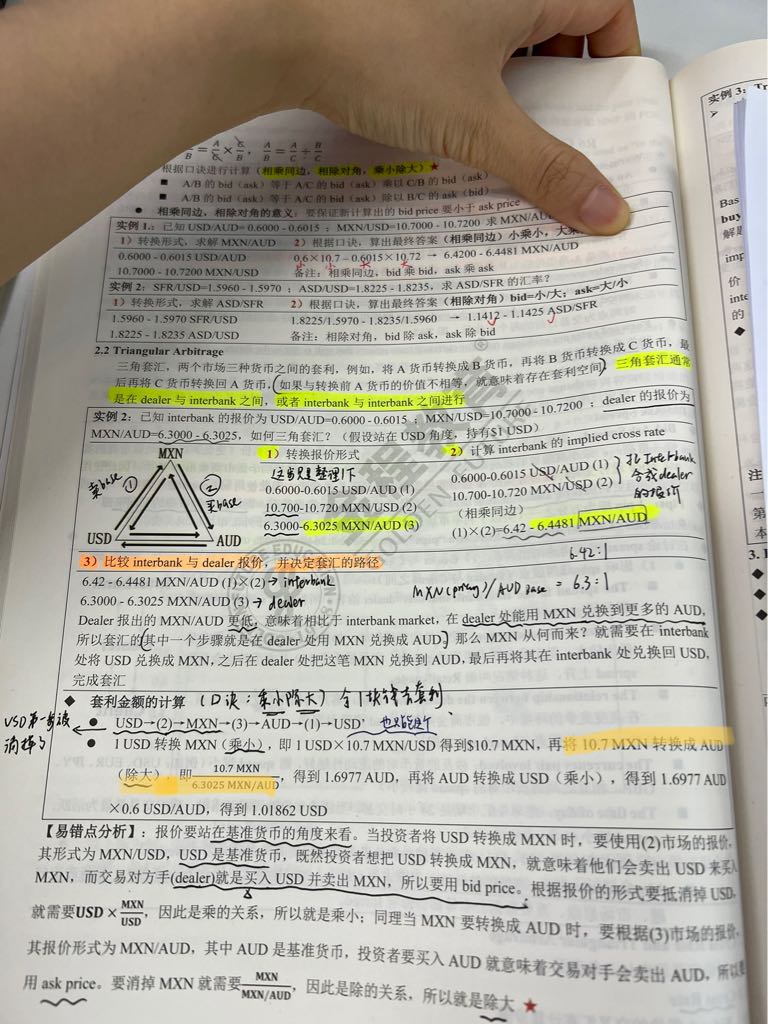 = A/C × C/B, A/B = A/C ÷ B/C
根据口诀进行计算（相乘同边，相除对角，乘小除大）★
■ A/B 的 bid（ask）等于 A/C 的 bid（ask）乘以 C/B 的 bid（ask）
■ A/B 的 bid（ask）等于 A/C 的 bid（ask）除以 B/C 的 ask（bid）
● 相乘同边，相除对角的意义：要保证新计算出的 bid price 要小于 ask price
实例 1.：已知 USD/AUD=0.6000 - 0.6015 ；MXN/USD=10.7000 - 10.7200 求 MXN/AUD
1）转换形式，求解 MXN/AUD 2）根据口诀，算出最终答案（相乘同边）小乘小，大乘
0.6000 - 0.6015 USD/AUD 0.6×10.7 – 0.6015×10.72 → 6.4200 - 6.4481 MXN/AUD
小 小 大 大
10.7000 - 10.7200 MXN/USD 备注：相乘同边，bid 乘 bid，ask 乘 ask
实例 2：SFR/USD=1.5960 - 1.5970 ；ASD/USD=1.8225 - 1.8235，求 ASD/SFR 的汇率？
1）转换形式，求解 ASD/SFR 2）根据口诀，算出最终答案（相除对角）bid=小/大；ask=大/小
1.5960 - 1.5970 SFR/USD 1.8225/1.5970 - 1.8235/1.5960 → 1.1412 - 1.1425 ASD/SFR
1.8225 - 1.8235 ASD/USD 备注：相除对角，bid 除 ask，ask 除 bid
2.2 Triangular Arbitrage
三角套汇，两个市场三种货币之间的套利，例如，将 A 货币转换成 B 货币，再将 B 货币转换成 C 货币，最
后再将 C 货币转换回 A 货币，如果与转换前 A 货币的价值不相等，就意味着存在套利空间，三角套汇通常
是在 dealer 与 interbank 之间，或者 interbank 与 interbank 之间进行
实例 2：已知 interbank 的报价为 USD/AUD=0.6000 - 0.6015；MXN/USD=10.7000 - 10.7200；dealer 的报价为
MXN/AUD=6.3000 - 6.3025，如何三角套汇？（假设站在 USD 角度，持有$1 USD）
MXN
卖base ①
② 买base
USD AUD
1）转换报价形式
这步只是整理1下
0.6000-0.6015 USD/AUD (1)
10.700-10.720 MXN/USD (2)
6.3000-6.3025 MXN/AUD (3)
2）计算 interbank 的 implied cross rate
0.6000-0.6015 USD/AUD (1)
10.700-10.720 MXN/USD (2)
把Interbank
合成dealer
的报价
(相乘同边)
(1)×(2)=6.42 - 6.4481 MXN/AUD
3）比较 interbank 与 dealer 报价，并决定套汇的路径
6.42 - 6.4481 MXN/AUD (1)×(2) → interbank
6.42 : 1
6.3000 - 6.3025 MXN/AUD (3) → dealer
MXN (pricing) // AUD base = 6.3 : 1
Dealer 报出的 MXN/AUD 更低，意味着相比于 interbank market，在 dealer 处能用 MXN 兑换到更多的 AUD，
所以套汇的其中一个步骤就是在 dealer 处用 MXN 兑换成 AUD，那么 MXN 从何而来？就需要在 interbank
处将 USD 兑换成 MXN，之后在 dealer 处把这笔 MXN 兑换到 AUD，最后再将其在 interbank 处兑换回 USD，
完成套汇
◆ 套利金额的计算（口诀：乘小除大）
● USD→(2)→MXN→(3)→AUD→(1)→USD'
USD第一步被
消掉了
● 1 USD 转换 MXN（乘小），即 1 USD×10.7 MXN/USD 得到$10.7 MXN，再将 10.7 MXN 转换成 AUD
（除大），即 10.7 MXN / 6.3025 MXN/AUD，得到 1.6977 AUD，再将 AUD 转换成 USD（乘小），得到 1.6977 AUD
×0.6 USD/AUD，得到 1.01862 USD
【易错点分析】：报价要站在基准货币的角度来看。当投资者将 USD 转换成 MXN 时，要使用(2)市场的报价，
其形式为 MXN/USD，USD 是基准货币，既然投资者想把 USD 转换成 MXN，就意味着他们会卖出 USD 来买入
MXN，而交易对方手(dealer)就是买入 USD 并卖出 MXN，所以要用 bid price。根据报价的形式要抵消掉 USD，
就需要USD × MXN/USD，因此是乘的关系，所以就是乘小；同理当 MXN 要转换成 AUD 时，要根据(3)市场的报价，
其报价形式为 MXN/AUD，其中 AUD 是基准货币，投资者要买入 AUD 就意味着交易对手会卖出 AUD，所以要
用 ask price。要消掉 MXN 就需要 MXN / MXN/AUD，因此是除的关系，所以就是除大 ★
实例 3：Tr
Bas
buy
解题
imp
价
inte
的
注
一
第
本
3. F